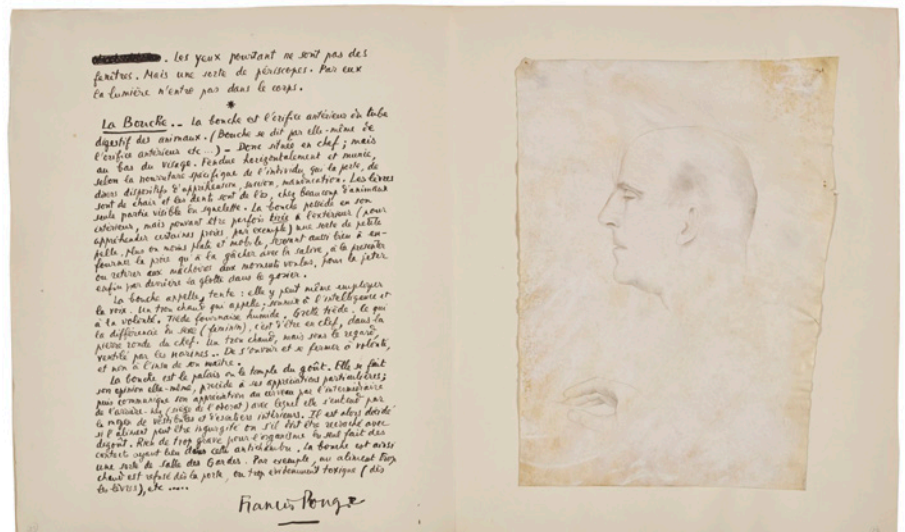 . Les yeux pourtant ne sont pas des
fenêtres. Mais une sorte de périscopes. Par eux
la lumière n'entre pas dans le corps.
*
La Bouche._ La bouche est l'orifice antérieur du tube
digestif des animaux. (Bouche se dit par elle-même de
l'orifice antérieur etc...) – Donc située en chef ; mais
au bas du visage. Fendue horizontalement et munie,
selon la nourriture spécifique de l'individu qui la porte, de
divers dispositifs d'appréhension, succion, manducation. Les lèvres
sont de chair et les dents sont de l'os, chez beaucoup d'animaux
seule partie visible du squelette. La bouche possède en son
intérieur, mais pouvant être parfois tirée à l'extérieur (pour
appréhender certaines proies, par exemple) une sorte de petite
pelle, plus ou moins plate et mobile, servant aussi bien à en-
fourner la proie qu'à la gâcher avec la salive, à la présenter
ou retirer aux mâchoires aux moments voulus, pour la jeter
enfin par derrière la glotte dans le gosier.
La bouche appelle, tente : elle y peut même employer
la voix. Un trou chaud qui appelle, soumis à l'intelligence et
à la volonté. Tiède fournaise humide. Grotte tiède. Ce qui
la différencie du sexe (féminin), c'est d'être en chef, dans la
pierre ronde du chef. Un trou chaud, mais sous le regard,
ventilé par les narines.. De s'ouvrir et se fermer à volonté,
et non à l'insu de son maître.
La bouche est le palais ou le temple du goût. Elle se fait
son opinion elle-même, procède à ses appréciations particulières ;
puis communique son appréciation au cerveau par l'intermédiaire
de l'arrière-nez (siège de l'odorat) avec lequel elle s'entend par
le moyen de vestibules et d'escaliers intérieurs. Il est alors décidé
si l'aliment peut être ingurgité ou s'il doit être recraché avec
dégoût. Rien de trop grave pour l'organisme du seul fait des
contacts ayant lieu dans cette antichambre. La bouche est ainsi
une sorte de Salle des Gardes. Par exemple, un aliment trop
chaud est refusé dès la porte, ou trop évidemment toxique (dès
les lèvres), etc .....
Francis Ponge